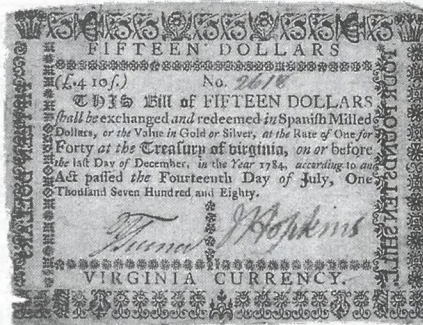 FIFTEEN DOLLARS
(£.4 10ſ.) No. 2618
THIS Bill of FIFTEEN DOLLARS
ſhall be exchanged and redeemed in Spaniſh Milled
Dollars, or the Value in Gold or Silver, at the Rate of One for
Forty at the Treaſury of Virginia, on or before
the laſt Day of December, in the Year 1784, according to an
Act paſſed the Fourteenth Day of July, One
Thouſand Seven Hundred and Eighty.
J Hopkins
VIRGINIA CURRENCY.